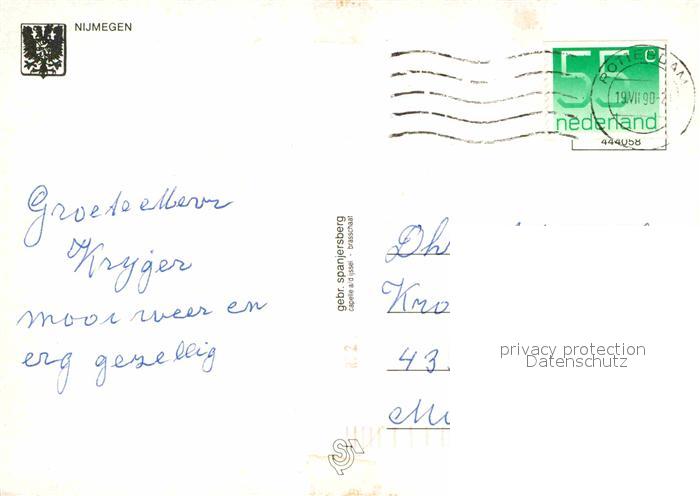 NIJMEGEN
ROTTERDAM
19.VII 90-2
55 c
nederland
444058
Groete Mevr
Kryger
mooi weer en
erg gezellig
gebr. spanjersberg
capelle a/d ijssel - brasschaat
Dh
Kro
43
privacy protection
Datenschutz